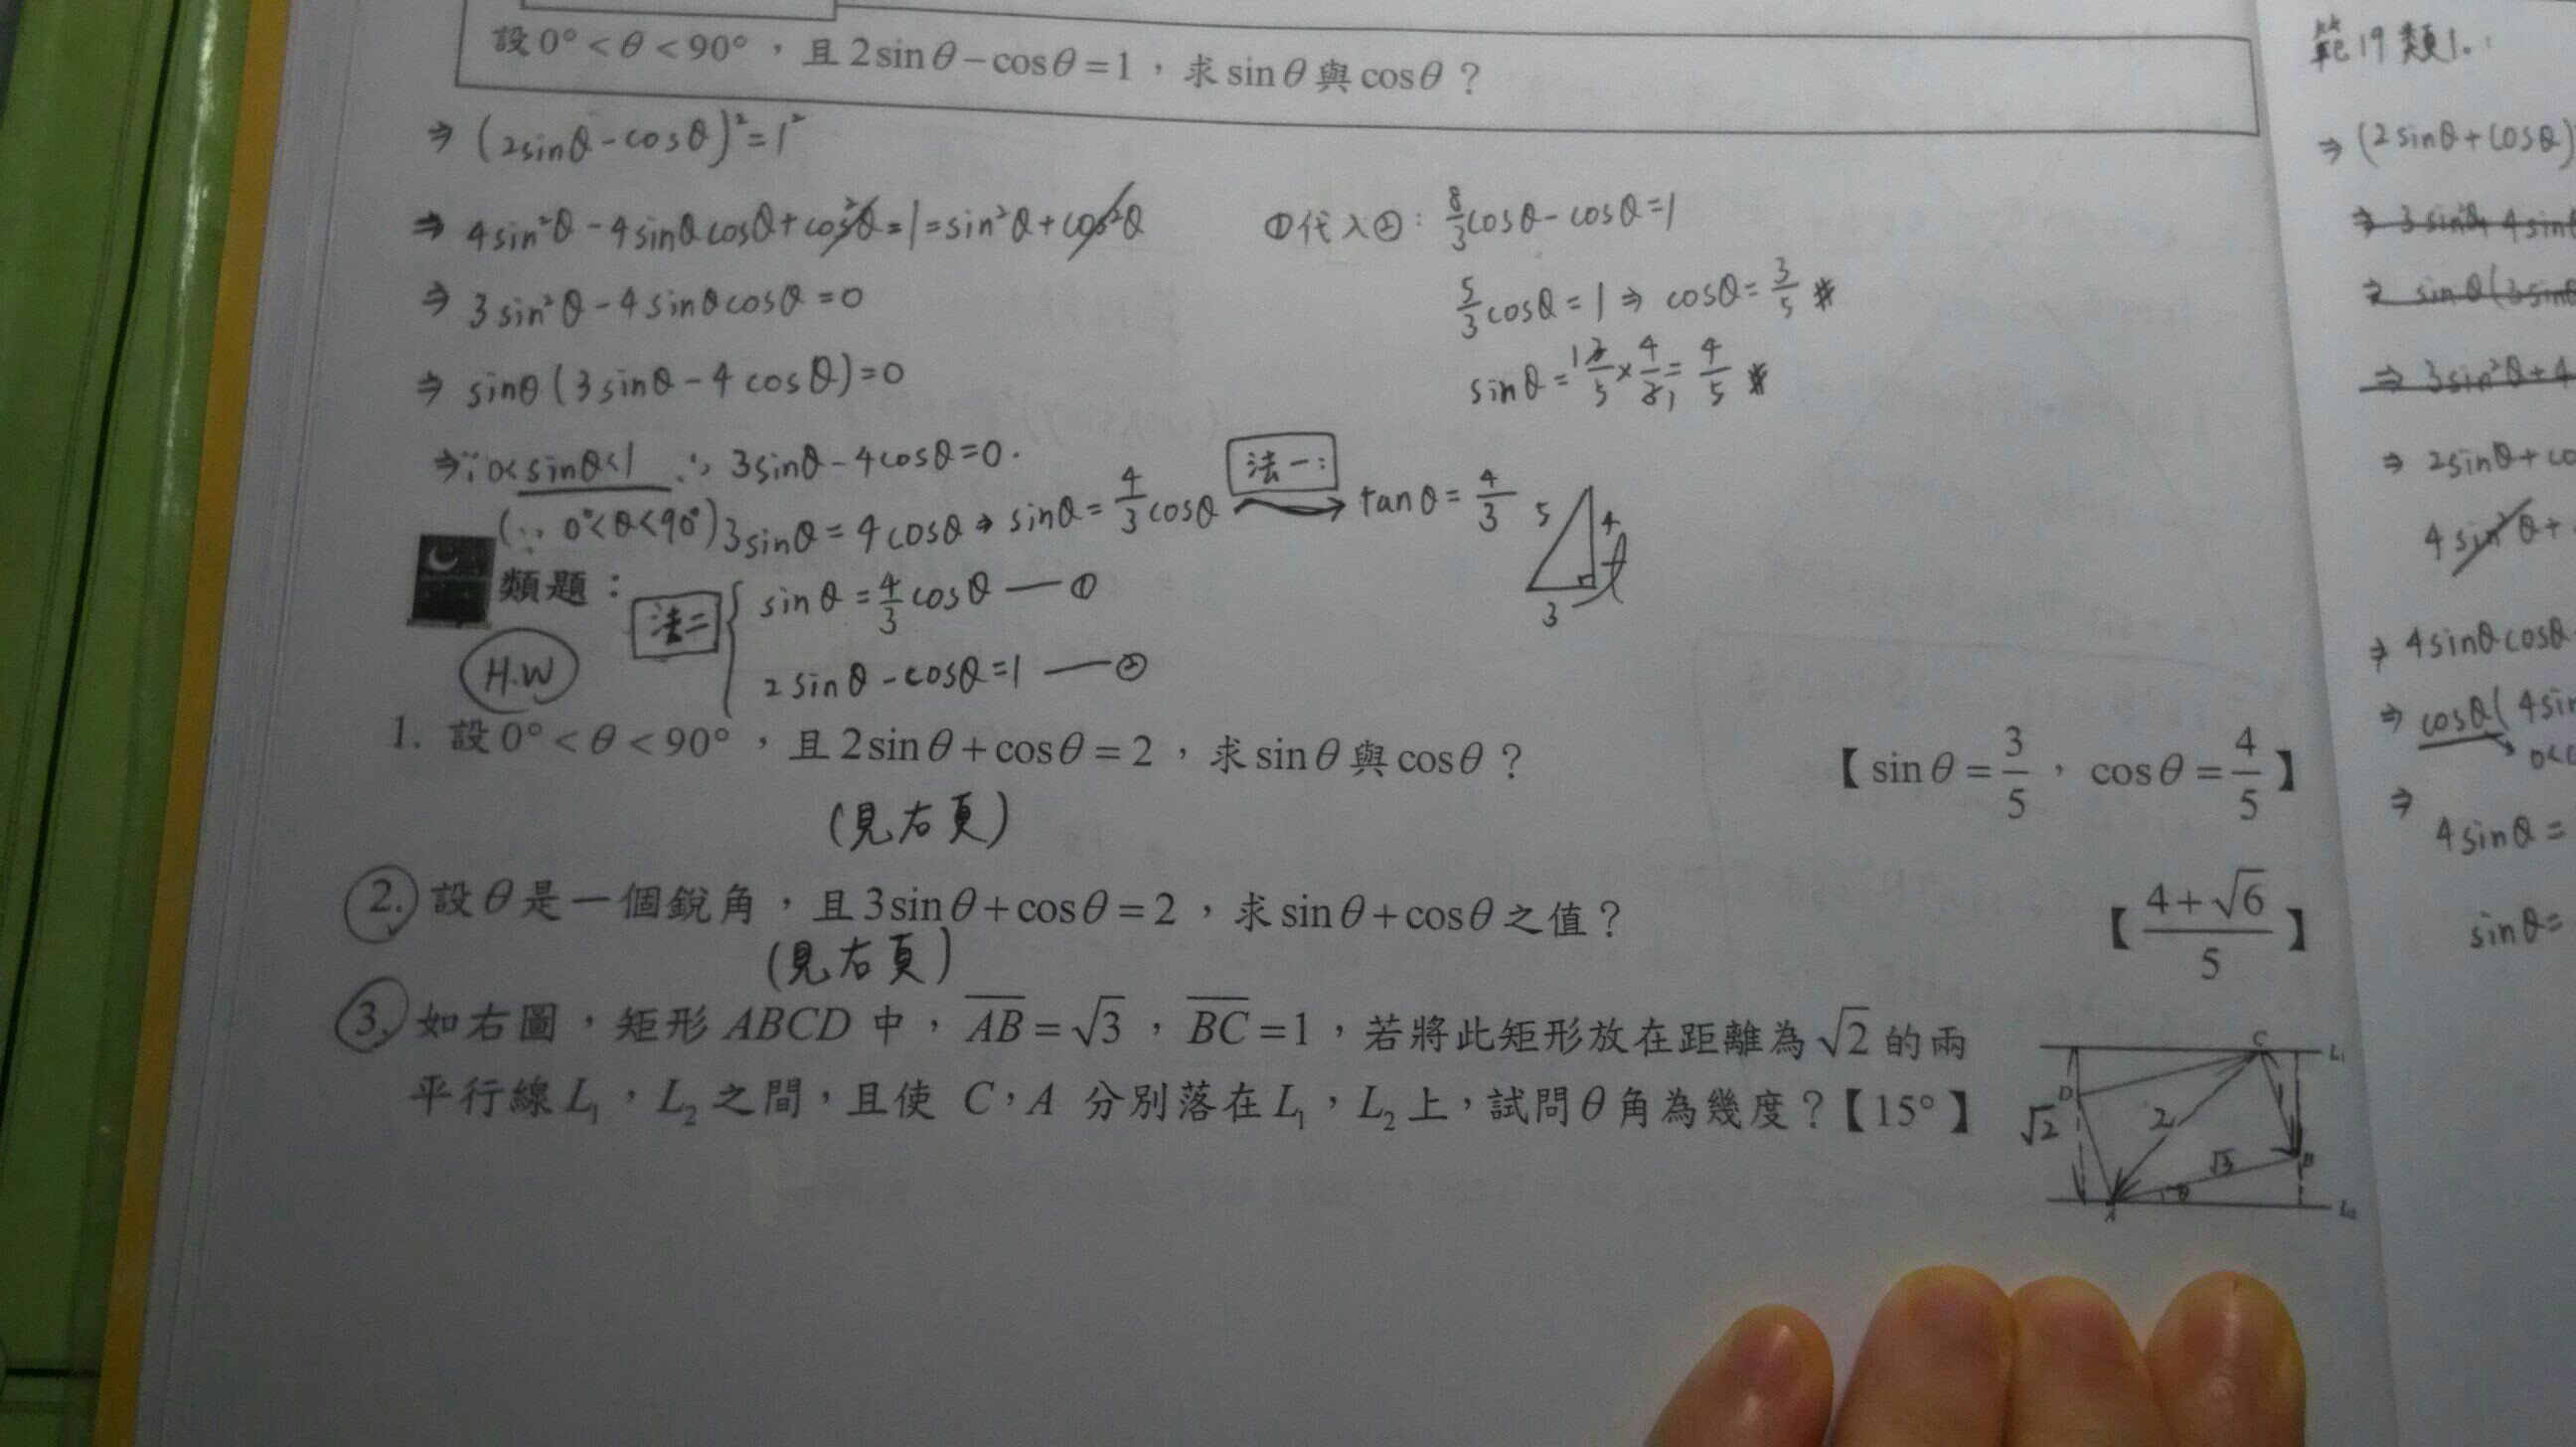 設0°<θ<90°，且2sinθ−cosθ=1，求sinθ與cosθ？
⇒ (2sinθ-cosθ)²=1²
⇒ 4sin²θ-4sinθcosθ+cos²θ=1=sin²θ+cos²θ
⇒ 3sin²θ-4sinθcosθ=0
⇒ sinθ(3sinθ-4cosθ)=0
⇒∵0<sinθ<1 ∴ 3sinθ-4cosθ=0.
(∵ 0°<θ<90°) 3sinθ=4cosθ ⇒ sinθ=4/3 cosθ 法一: → tanθ=4/3
5 4 3
①代入②: 8/3 cosθ-cosθ=1
5/3 cosθ=1 ⇒ cosθ=3/5 #
sinθ= 3/5 × 4/3 = 4/5 #
類題：
H.W
法二 { sinθ=4/3 cosθ — ①
2sinθ-cosθ=1 — ②
1. 設0°<θ<90°，且2sinθ+cosθ=2，求sinθ與cosθ？ 【sinθ=3/5，cosθ=4/5】
(見右頁)
2. 設θ是一個銳角，且3sinθ+cosθ=2，求sinθ+cosθ之值？ 【(4+√6)/5】
(見右頁)
3. 如右圖，矩形ABCD中，AB=√3，BC=1，若將此矩形放在距離為√2的兩
平行線L₁，L₂之間，且使 C，A 分別落在L₁，L₂上，試問θ角為幾度？【15°】
C L₁
D
√2 2 1
√3 B
θ
A L₂
範19類1。
⇒ (2sinθ+cosθ)
⇒ 3sin²θ+4sinθ
⇒ sinθ(3sinθ
⇒ 3sin²θ+4
⇒ 2sinθ+co
4sin²θ+
⇒ 4sinθcosθ
⇒ cosθ(4sin
0<c
⇒
4sinθ=
sinθ=